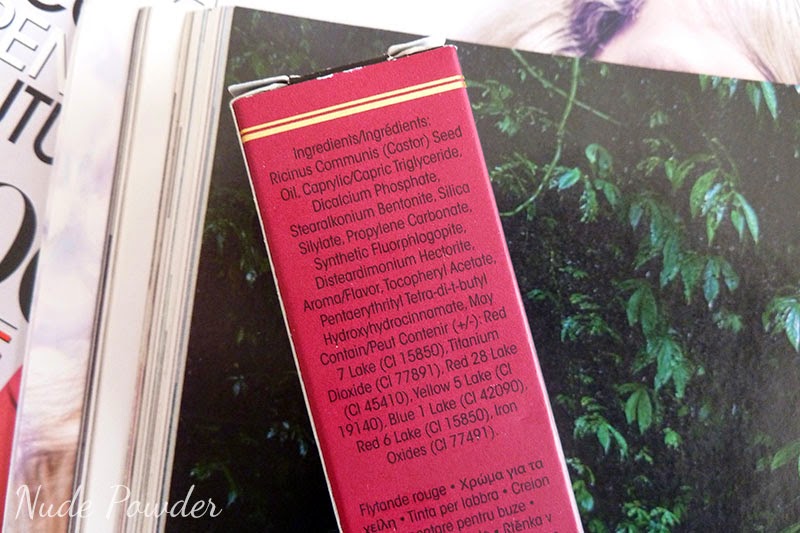 Ingredients/Ingrédients:
Ricinus Communis (Castor) Seed
Oil, Caprylic/Capric Triglyceride,
Dicalcium Phosphate,
Stearalkonium Bentonite, Silica
Silylate, Propylene Carbonate,
Synthetic Fluorphlogopite,
Disteardimonium Hectorite,
Aroma/Flavor, Tocopheryl Acetate,
Pentaerythrityl Tetra-di-t-butyl
Hydroxyhydrocinnamate, May
Contain/Peut Contenir (+/-): Red
7 Lake (CI 15850), Titanium
Dioxide (CI 77891), Red 28 Lake
(CI 45410), Yellow 5 Lake (CI
19140), Blue 1 Lake (CI 42090),
Red 6 Lake (CI 15850), Iron
Oxides (CI 77491).
Flytande rouge • Χρώμα για τα
χείλη • Tinta per labbra • Creion
pentru buze •
Rtěnka v
Nude Powder